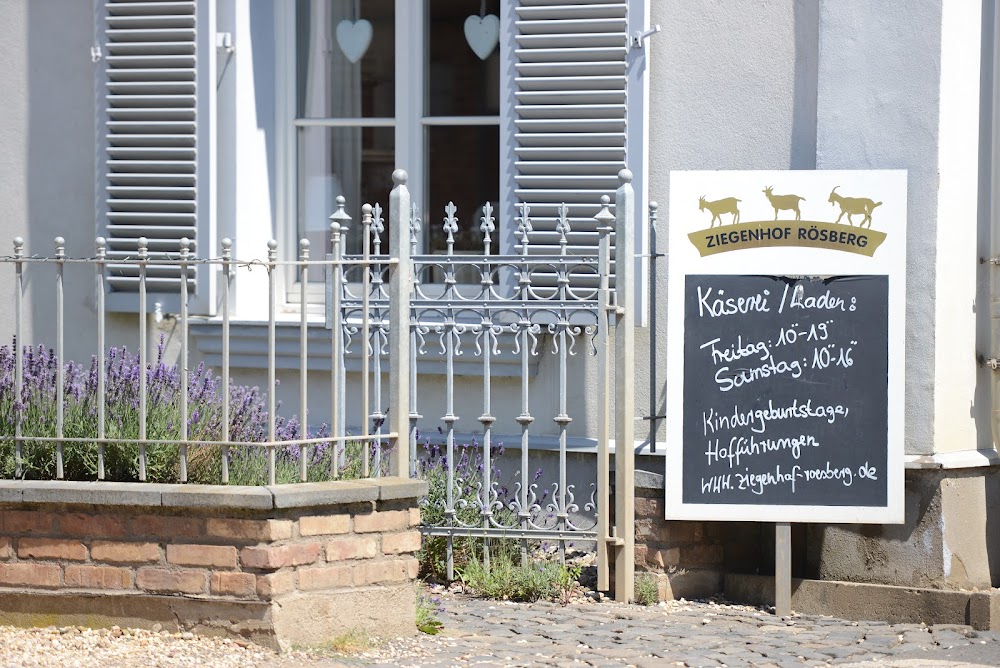 ZIEGENHOF RÖSBERG
Käserei / Laden:
Freitag: 10⁰⁰-19⁰⁰
Samstag: 10⁰⁰-16⁰⁰
Kindergeburtstage,
Hofführungen
www.ziegenhof-roesberg.de